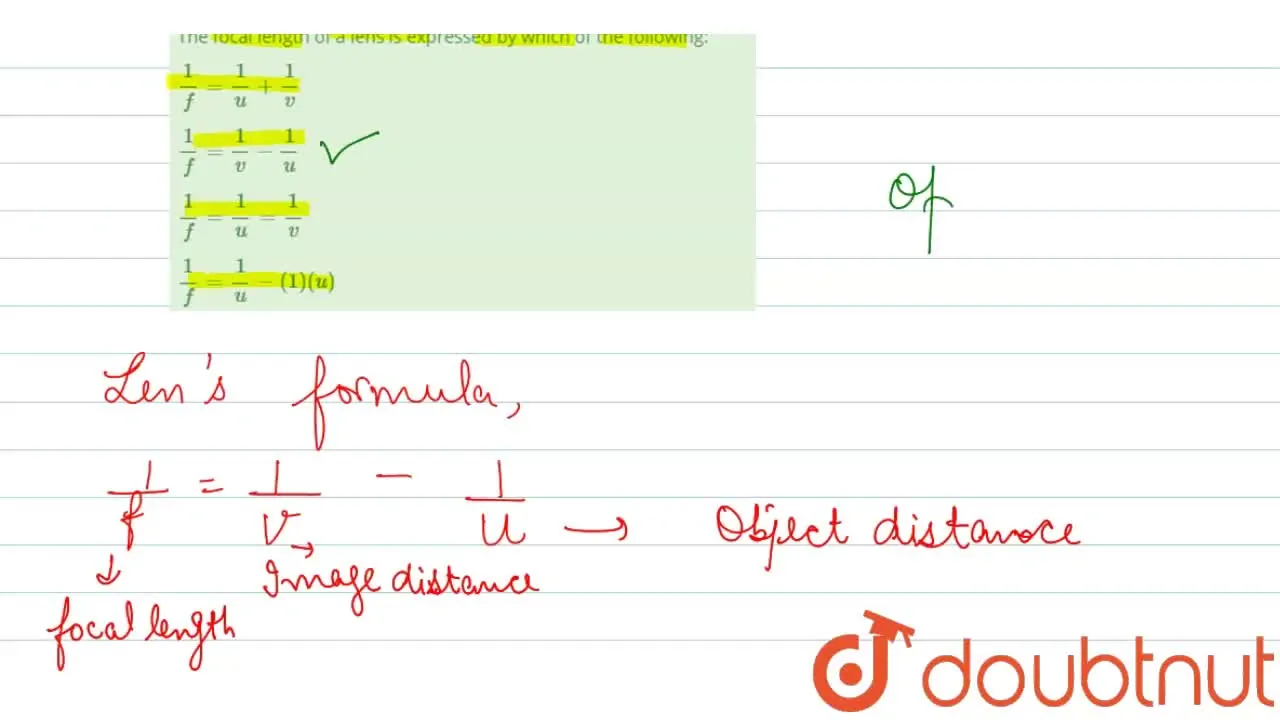 The focal length of a lens is expressed by which of the following:
1/f = 1/u + 1/v
1/f = 1/v − 1/u ✓
1/f = 1/u = 1/v
1/f = 1/u − (1)(u)
Op
Len's formula,
1/f = 1/v − 1/u → Object distance
↓ → Image distance
focal length
doubtnut